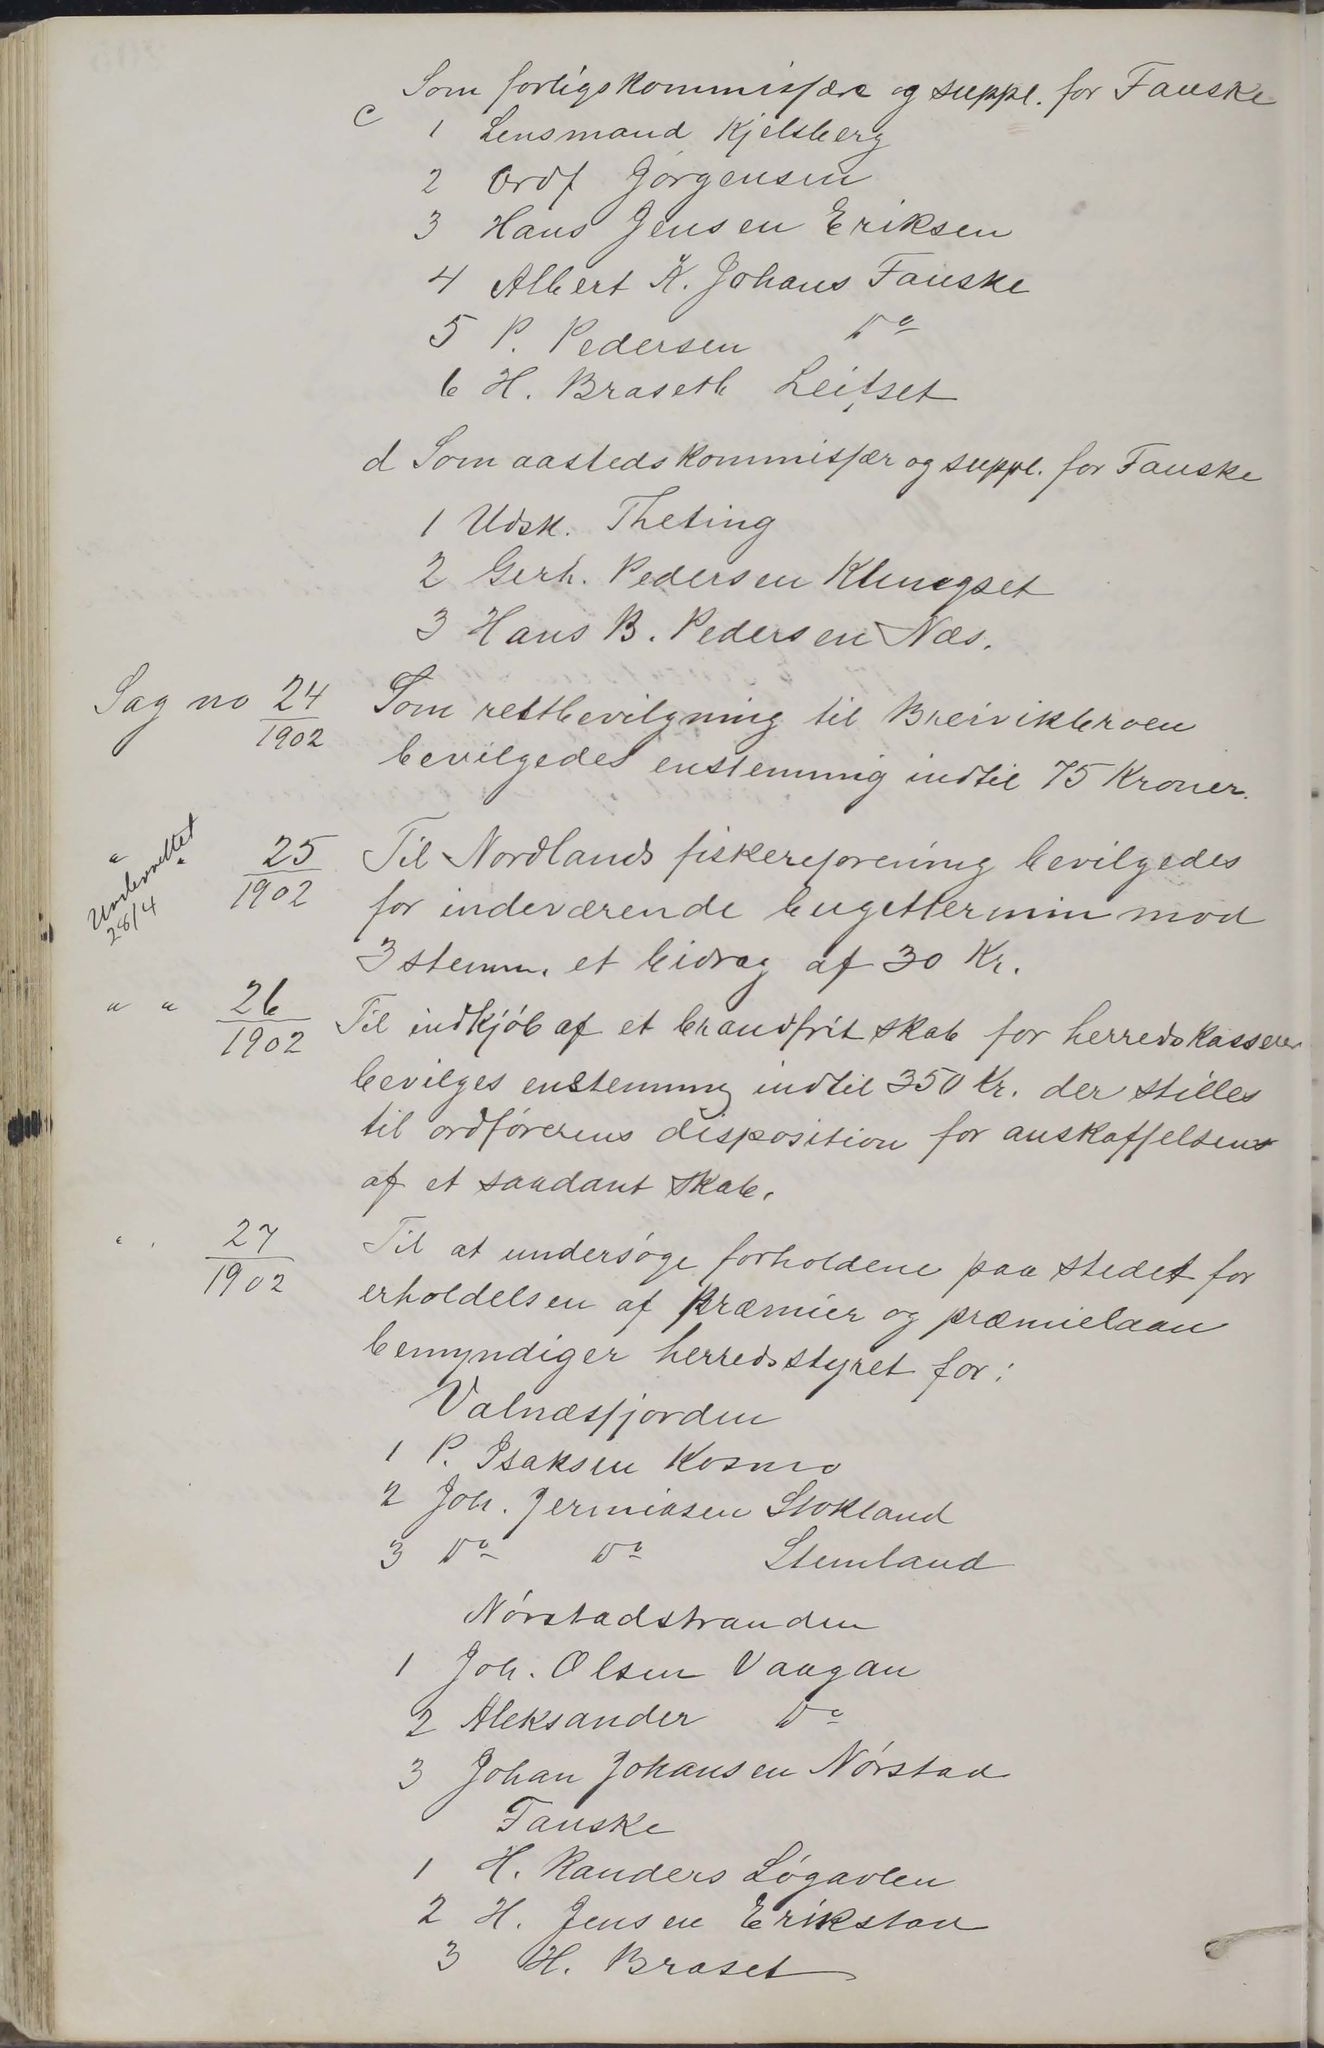 Som forligskommissær og suppl. for Fauske
c 1 Lensmand Kjelsberg
2 Ordf Jørgensen
3 Hans Jensen Eriksen
4 Albert K. Johans Fauske
5 P. Pedersen Do
6 H. Braseth Leifset
d Som aastedskommissær og suppl. for Fauske
1 Udsk. Theting
2 Gerh. Pedersen Klungset
3 Hans B. Pedersen Næs.
Sag no 24/1902 Som restbevilgning til Breivikbroen
bevilgedes enstemmig indtil 75 Kroner.
" " 25/1902 Til Nordlands fiskereforening bevilgedes
Underrettet 28/4
for indeværende bugettermin mod
3 stemm. et bidrag af 30 Kr.
" " 26/1902 Til indkjøb af et brandfrit skab for herredskasserer
bevilges enstemmig indtil 350 Kr. der stilles
til ordførerens disposition for anskaffelsen
af et saadant skab.
" " 27/1902 Til at undersøge forholdene paa stedet for
erholdelsen af præmier og præmielaan
bemyndiger herredsstyret for:
Valnæsfjorden
1 P. Isaksen Kosmo
2 Joh. Jermiasen Stokland
3 Do Do Stemland
Nørstadstranden
1 Joh. Olsen Vaagan
2 Aleksander Do
3 Johan Johansen Nørstad
Fauske
1 H. Randers Løgavlen
2 H. Jensen Erikstad
3 H. Braset